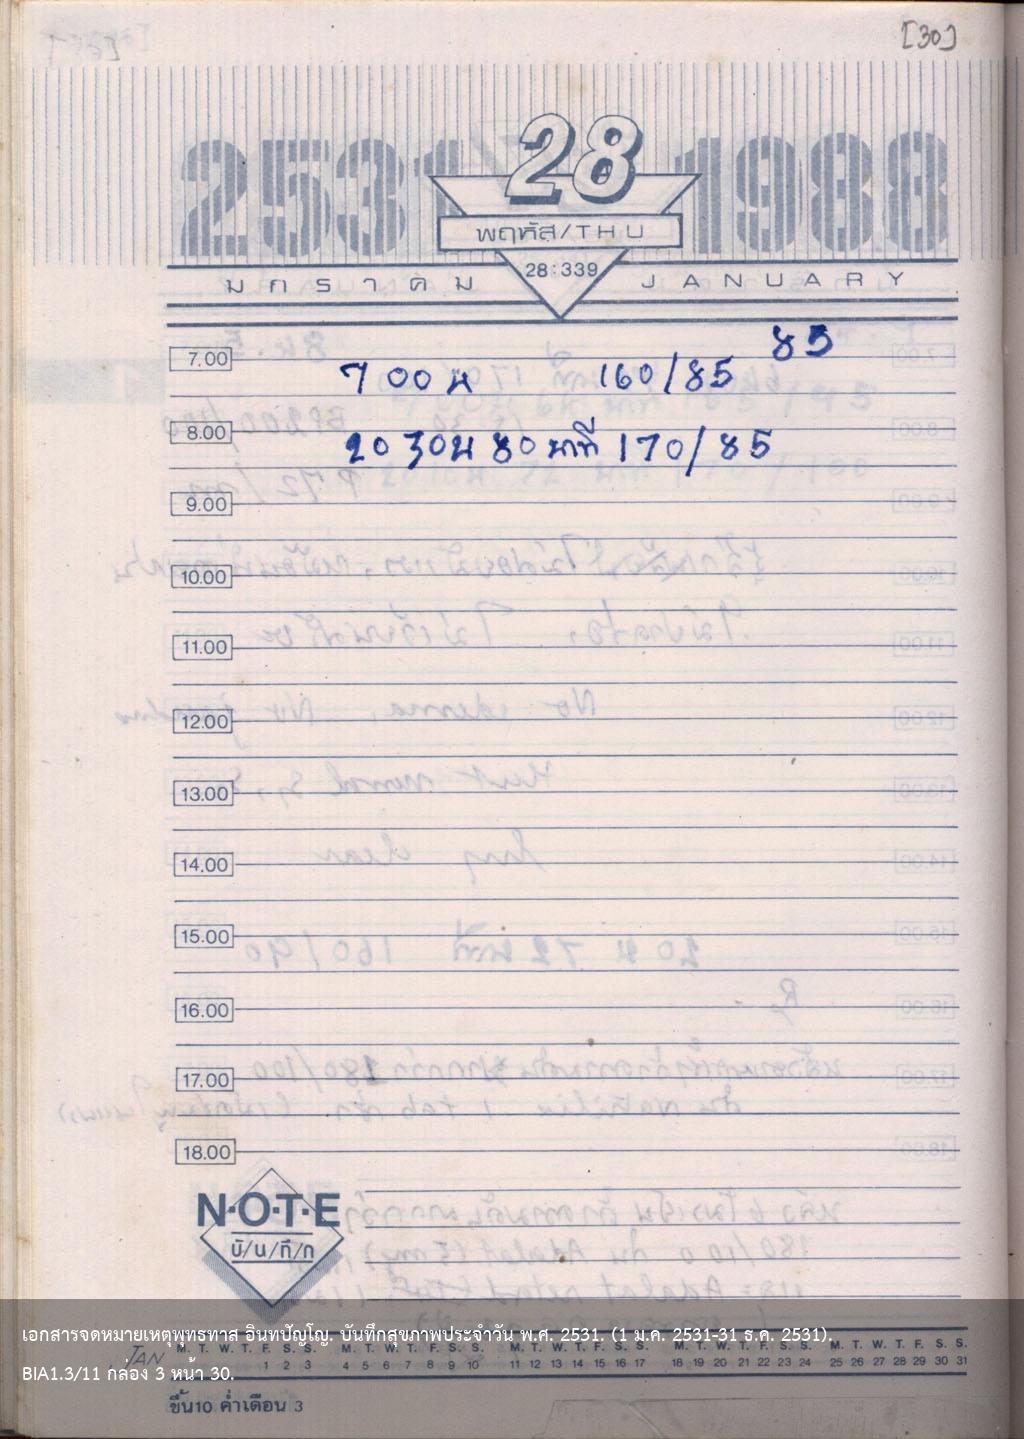 [30]
2531 28 1988
พฤหัส/THU
มกราคม 28:339 JANUARY
85
7.00
7 00 น 160/85
8.00
20 30น 80 นาที 170/85
9.00
10.00
11.00
12.00
13.00
14.00
15.00
16.00
17.00
18.00
N·O·T·E
บั/น/ทึ/ก
เอกสารจดหมายเหตุพุทธทาส อินทปัญโญ. บันทึกสุขภาพประจำวัน พ.ศ. 2531. (1 ม.ค. 2531-31 ธ.ค. 2531).
JAN M. T. W. T. F. S. S. M. T. W. T. F. S. S. M. T. W. T. F. S. S. M. T. W. T. F. S. S. M. T. W. T. F. S. S.
1 2 3 4 5 6 7 8 9 10 11 12 13 14 15 16 17 18 19 20 21 22 23 24 25 26 27 28 29 30 31
BIA1.3/11 กล่อง 3 หน้า 30.
ขึ้น10 ค่ำเดือน 3